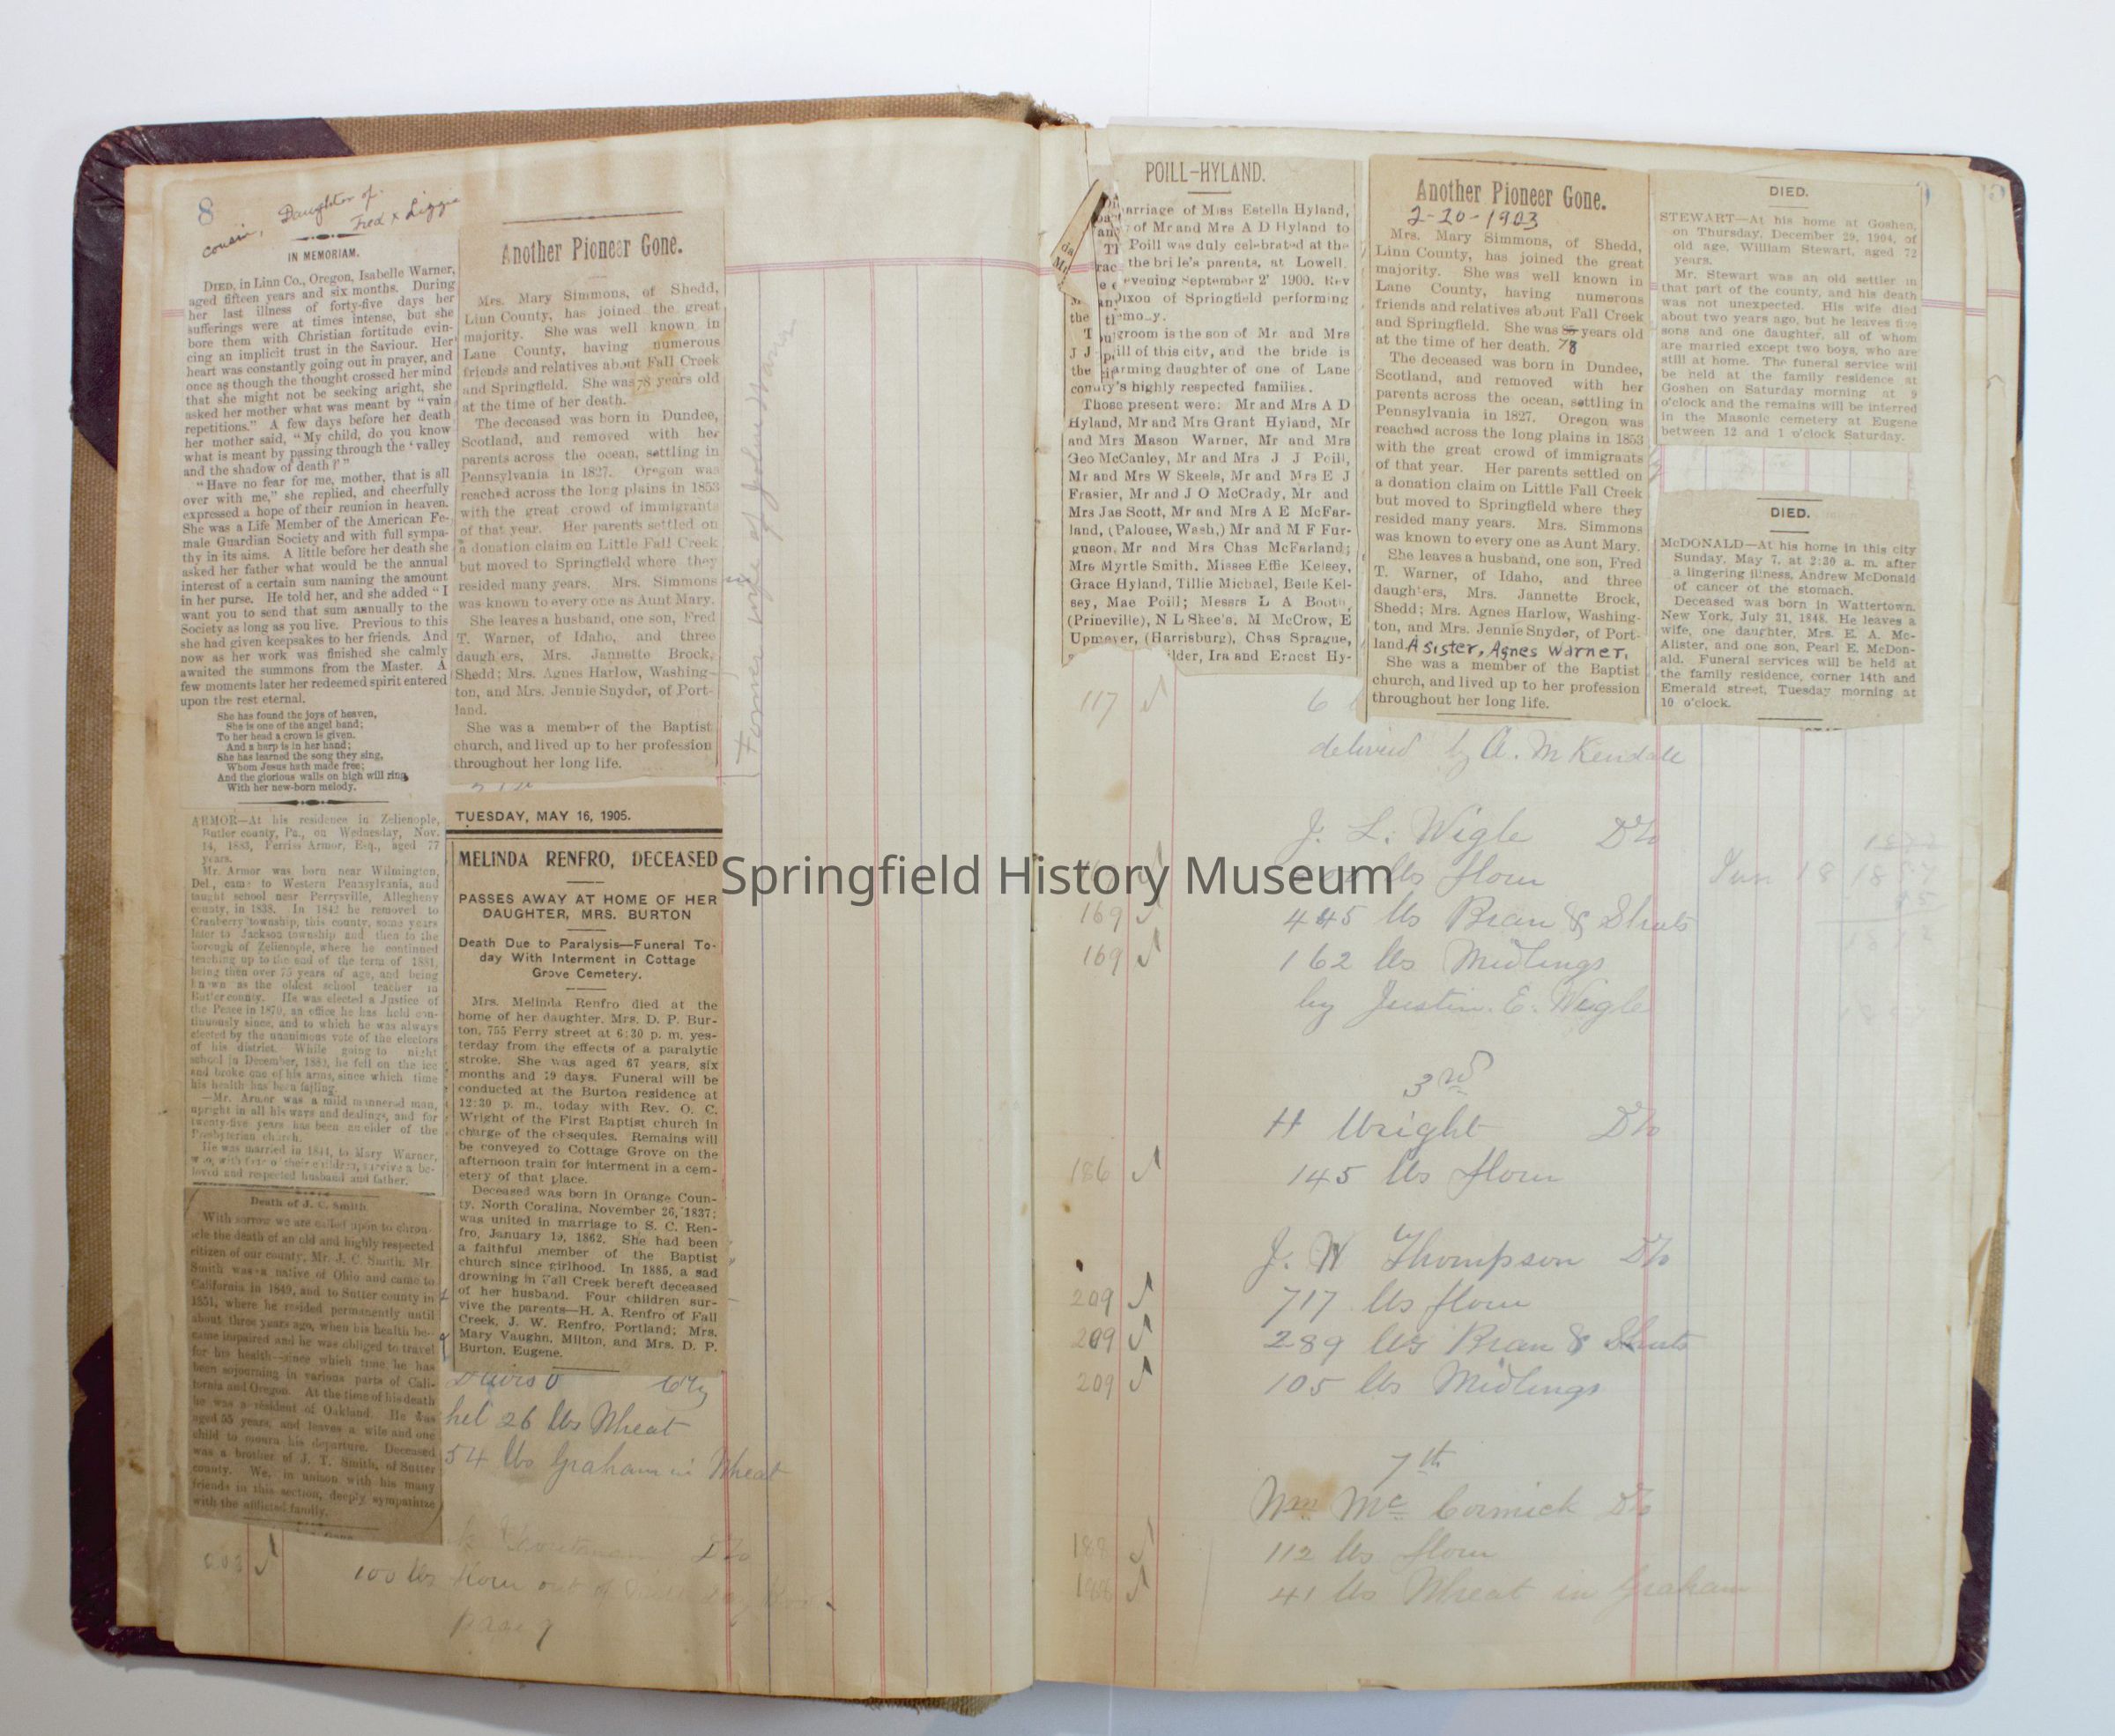 8
cousin, Daughter of
Fred & Lizzie
IN MEMORIAM.
DIED, in Linn Co., Oregon, Isabelle Warner,
aged fifteen years and six months. During
her last illness of forty-five days her
sufferings were at times intense, but she
bore them with Christian fortitude evin-
cing an implicit trust in the Saviour. Her
heart was constantly going out in prayer, and
once as though the thought crossed her mind
that she might not be seeking aright, she
asked her mother what was meant by "vain
repetitions." A few days before her death
her mother said, "My child, do you know
what is meant by passing through the 'valley
and the shadow of death?'"
"Have no fear for me, mother, that is all
over with me," she replied, and cheerfully
expressed a hope of their reunion in heaven.
She was a Life Member of the American Fe-
male Guardian Society and with full sympa-
thy in its aims. A little before her death she
asked her father what would be the annual
interest of a certain sum naming the amount
in her purse. He told her, and she added "I
want you to send that sum annually to the
Society as long as you live. Previous to this
she had given keepsakes to her friends. And
now as her work was finished she calmly
awaited the summons from the Master. A
few moments later her redeemed spirit entered
upon the rest eternal.
She has found the joys of heaven,
She is one of the angel band;
To her head a crown is given.
And a harp is in her hand;
She has learned the song they sing,
Whom Jesus hath made free;
And the glorious walls on high will ring,
With her new-born melody.
ARMOR—At his residence in Zelienople,
Butler county, Pa., on Wednesday, Nov.
14, 1883, Ferriss Armor, Esq., aged 77
years.
Mr. Armor was born near Wilmington,
Del., came to Western Pennsylvania, and
taught school near Perrysville, Allegheny
county, in 1838. In 1842 he removed to
Cranberry township, this county, some years
later to Jackson township and then to the
borough of Zelienople, where he continued
teaching up to the end of the term of 1881,
being then over 75 years of age, and being
known as the oldest school teacher in
Butler county. He was elected a Justice of
the Peace in 1870, an office he has held con-
tinuously since, and to which he was always
elected by the unanimous vote of the electors
of his district. While going to night
school in December, 1881, he fell on the ice
and broke one of his arms, since which time
his health has been failing.
—Mr. Armor was a mild mannered man,
upright in all his ways and dealings, and for
twenty-five years has been an elder of the
Presbyterian church.
He was married in 1844, to Mary Warner,
who, with four of their children, survive a be-
loved and respected husband and father.
Death of J. C. Smith
With sorrow we are called upon to chron-
icle the death of an old and highly respected
citizen of our county, Mr. J. C. Smith. Mr.
Smith was a native of Ohio and came to
California in 1849, and to Sutter county in
1851, where he resided permanently until
about three years ago, when his health be-
came impaired and he was obliged to travel
for his health—since which time he has
been sojourning in various parts of Cali-
fornia and Oregon. At the time of his death
he was a resident of Oakland. He was
aged 55 years, and leaves a wife and one
child to mourn his departure. Deceased
was a brother of J. T. Smith, of Sutter
county. We, in unison with his many
friends in this section, deeply sympathize
with the afflicted family.
Another Pioneer Gone.
Mrs. Mary Simmons, of Shedd,
Linn County, has joined the great
majority. She was well known in
Lane County, having numerous
friends and relatives about Fall Creek
and Springfield. She was 78 years old
at the time of her death.
The deceased was born in Dundee,
Scotland, and removed with her
parents across the ocean, settling in
Pennsylvania in 1827. Oregon was
reached across the long plains in 1853
with the great crowd of immigrants
of that year. Her parents settled on
a donation claim on Little Fall Creek
but moved to Springfield where they
resided many years. Mrs. Simmons
was known to every one as Aunt Mary.
She leaves a husband, one son, Fred
T. Warner, of Idaho, and three
daughters, Mrs. Jannette Brock,
Shedd; Mrs. Agnes Harlow, Washing-
ton, and Mrs. Jennie Snyder, of Port-
land.
She was a member of the Baptist
church, and lived up to her profession
throughout her long life.
Former wife of John Warner
TUESDAY, MAY 16, 1905.
MELINDA RENFRO, DECEASED
PASSES AWAY AT HOME OF HER
DAUGHTER, MRS. BURTON
Death Due to Paralysis—Funeral To-
day With Interment in Cottage
Grove Cemetery.
Mrs. Melinda Renfro died at the
home of her daughter, Mrs. D. P. Bur-
ton, 755 Ferry street at 6:30 p. m. yes-
terday from the effects of a paralytic
stroke. She was aged 67 years, six
months and 19 days. Funeral will be
conducted at the Burton residence at
12:30 p. m., today with Rev. O. C.
Wright of the First Baptist church in
charge of the obsequies. Remains will
be conveyed to Cottage Grove on the
afternoon train for interment in a cem-
etery of that place.
Deceased was born in Orange Coun-
ty, North Coralina, November 26, 1837;
was united in marriage to S. C. Ren-
fro, January 19, 1862. She had been
a faithful member of the Baptist
church since girlhood. In 1885, a sad
drowning in Fall Creek bereft deceased
of her husband. Four children sur-
vive the parents—H. A. Renfro of Fall
Creek, J. W. Renfro, Portland; Mrs.
Mary Vaughn, Milton, and Mrs. D. P.
Burton, Eugene.
26 lbs Wheat
54 lbs Graham in Wheat
100 lbs flour out of
page 7
POILL-HYLAND.
arriage of Miss Estella Hyland,
of Mr and Mrs A D Hyland to
Poill was duly celebrated at the
the bride's parents, at Lowell.
evening September 2' 1900. Rev
Dixon of Springfield performing
emony.
groom is the son of Mr and Mrs
J J Poill of this city, and the bride is
the charming daughter of one of Lane
county's highly respected families.
Those present were: Mr and Mrs A D
Hyland, Mr and Mrs Grant Hyland, Mr
and Mrs Mason Warner, Mr and Mrs
Geo McCanley, Mr and Mrs J J Poill,
Mr and Mrs W Skeels, Mr and Mrs E J
Frasier, Mr and J O McCrady, Mr and
Mrs Jas Scott, Mr and Mrs A E McFar-
land, (Palouse, Wash,) Mr and M F Fur-
guson, Mr and Mrs Chas McFarland;
Mrs Myrtle Smith. Misses Effie Kelsey,
Grace Hyland, Tillie Michael, Belle Kel-
sey, Mae Poill; Messrs L A Booth,
(Prineville), N L Skee's, M McCrow, E
Upmeyer, (Harrisburg), Chas Sprague,
ilder, Ira and Ernest Hy-
Another Pioneer Gone.
2-20-1903
Mrs. Mary Simmons, of Shedd,
Linn County, has joined the great
majority. She was well known in
Lane County, having numerous
friends and relatives about Fall Creek
and Springfield. She was years old
at the time of her death. 78
The deceased was born in Dundee,
Scotland, and removed with her
parents across the ocean, settling in
Pennsylvania in 1827. Oregon was
reached across the long plains in 1853
with the great crowd of immigrants
of that year. Her parents settled on
a donation claim on Little Fall Creek
but moved to Springfield where they
resided many years. Mrs. Simmons
was known to every one as Aunt Mary.
She leaves a husband, one son, Fred
T. Warner, of Idaho, and three
daughters, Mrs. Jannette Brock,
Shedd; Mrs. Agnes Harlow, Washing-
ton, and Mrs. Jennie Snyder, of Port-
land. A sister, Agnes Warner.
She was a member of the Baptist
church, and lived up to her profession
throughout her long life.
DIED.
STEWART—At his home at Goshen,
on Thursday, December 29, 1904, of
old age, William Stewart, aged 72
years.
Mr. Stewart was an old settler in
that part of the county, and his death
was not unexpected. His wife died
about two years ago, but he leaves five
sons and one daughter, all of whom
are married except two boys, who are
still at home. The funeral service will
be held at the family residence at
Goshen on Saturday morning at 9
o'clock and the remains will be interred
in the Masonic cemetery at Eugene
between 12 and 1 o'clock Saturday.
DIED.
McDONALD—At his home in this city
Sunday, May 7, at 2:30 a. m. after
a lingering illness, Andrew McDonald
of cancer of the stomach.
Deceased was born in Wattertown,
New York, July 31, 1848. He leaves a
wife, one daughter, Mrs. E. A. Mc-
Alister, and one son, Pearl E. McDon-
ald. Funeral services will be held at
the family residence, corner 14th and
Emerald street, Tuesday morning at
10 o'clock.
117
by A. M Kendall
J. L. Wigle Do
lbs flour
169 445 lbs Bran & Shuts
169 162 lbs Midlings
by Justin. E. Wigle
3rd
H Wright Do
186 145 lbs flour
J. W Thompson Do
209 717 lbs flour
209 289 lbs Bran & Shuts
209 105 lbs Midlings
7th
Wm Mc Cormick Do
188 112 lbs flour
188 41 lbs Wheat in Graham
Springfield History Museum